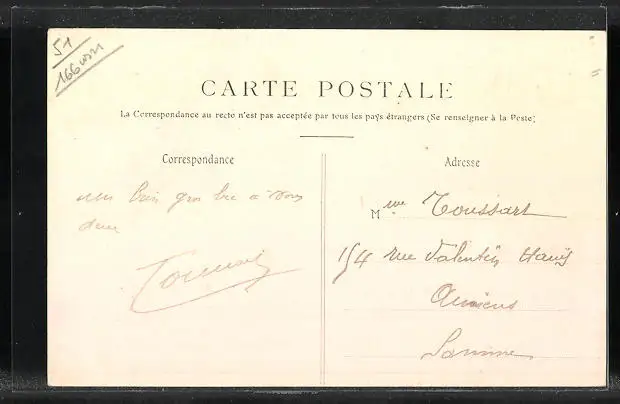 51
166
CARTE POSTALE
La Correspondance au recto n'est pas acceptée par tous les pays étrangers (Se renseigner à la Poste)
Correspondance
un bien gros à vous
deux
Adresse
Mme Toussart
154 rue Valentin Haüy
Amiens
Somme